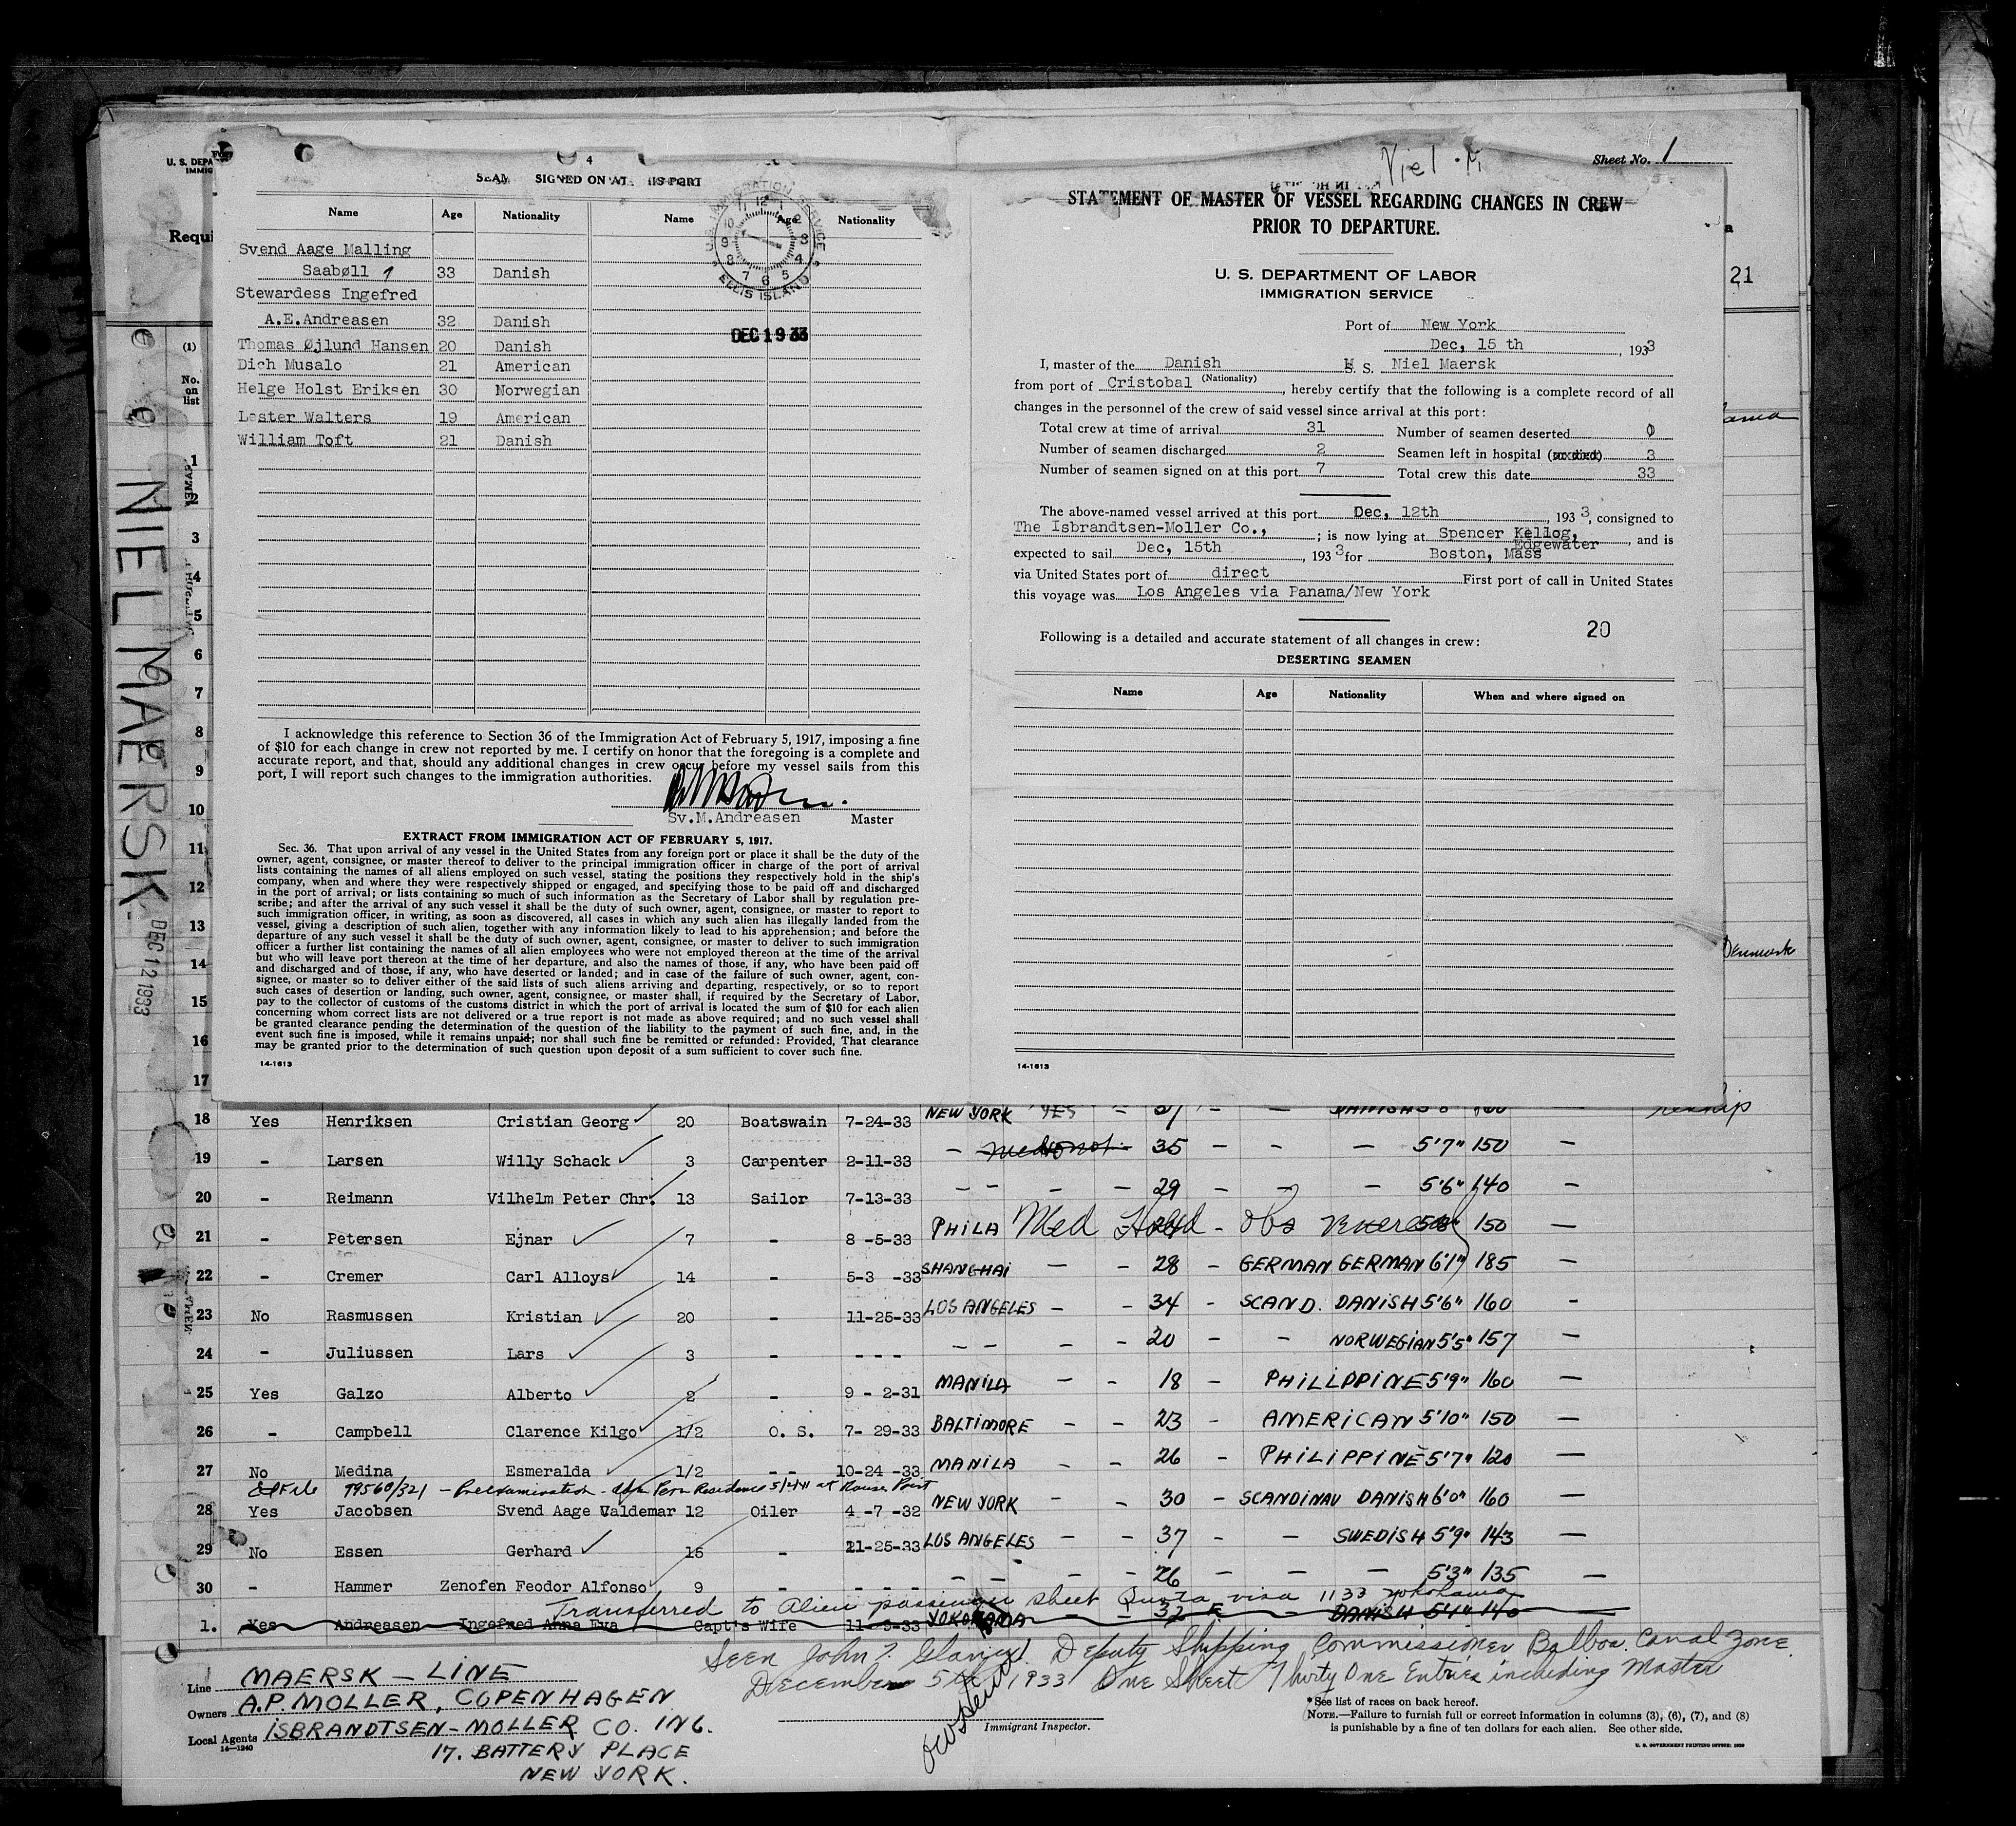 U. S. DEPA
IMMIG
Requi
4
SIGNED ON AT
Name Age Nationality Name Age Nationality
Svend Aage Malling
Saabøll 33 Danish
Stewardess Ingefred
A.E.Andreasen 32 Danish
Thomas Øjlund Hansen 20 Danish
Dich Musalo 21 American
Helge Holst Eriksen 30 Norwegian
Lester Walters 19 American
William Toft 21 Danish
ELLIS ISLAND
I acknowledge this reference to Section 36 of the Immigration Act of February 5, 1917, imposing a fine
of $10 for each change in crew not reported by me. I certify on honor that the foregoing is a complete and
accurate report, and that, should any additional changes in crew occur before my vessel sails from this
port, I will report such changes to the immigration authorities.
Sv.M.Andreasen Master
EXTRACT FROM IMMIGRATION ACT OF FEBRUARY 5, 1917.
Sec. 36. That upon arrival of any vessel in the United States from any foreign port or place it shall be the duty of the
owner, agent, consignee, or master thereof to deliver to the principal immigration officer in charge of the port of arrival
lists containing the names of all aliens employed on such vessel, stating the positions they respectively hold in the ship's
company, when and where they were respectively shipped or engaged, and specifying those to be paid off and discharged
in the port of arrival; or lists containing so much of such information as the Secretary of Labor shall by regulation pre-
scribe; and after the arrival of any such vessel it shall be the duty of such owner, agent, consignee, or master to report to
such immigration officer, in writing, as soon as discovered, all cases in which any such alien has illegally landed from the
vessel, giving a description of such alien, together with any information likely to lead to his apprehension; and before the
departure of any such vessel it shall be the duty of such owner, agent, consignee, or master to deliver to such immigration
officer a further list containing the names of all alien employees who were not employed thereon at the time of the arrival
but who will leave port thereon at the time of her departure, and also the names of those, if any, who have been paid off
and discharged and of those, if any, who have deserted or landed; and in case of the failure of such owner, agent, con-
signee, or master so to deliver either of the said lists of such aliens arriving and departing, respectively, or so to report
such cases of desertion or landing, such owner, agent, consignee, or master shall, if required by the Secretary of Labor,
pay to the collector of customs of the customs district in which the port of arrival is located the sum of $10 for each alien
concerning whom correct lists are not delivered or a true report is not made as above required; and no such vessel shall
be granted clearance pending the determination of the question of the liability to the payment of such fine, and, in the
event such fine is imposed, while it remains unpaid; nor shall such fine be remitted or refunded: Provided, That clearance
may be granted prior to the determination of such question upon deposit of a sum sufficient to cover such fine.
14-1613
Sheet No. 1
STATEMENT OF MASTER OF VESSEL REGARDING CHANGES IN CREW
PRIOR TO DEPARTURE.
U. S. DEPARTMENT OF LABOR
IMMIGRATION SERVICE
Port of New York
Dec, 15 th , 1933
I, master of the Danish S. S. Niel Maersk
from port of Cristobal (Nationality) , hereby certify that the following is a complete record of all
changes in the personnel of the crew of said vessel since arrival at this port:
Total crew at time of arrival 31 Number of seamen deserted 0
Number of seamen discharged 2 Seamen left in hospital (or died) 3
Number of seamen signed on at this port 7 Total crew this date 33
The above-named vessel arrived at this port Dec, 12th , 1933, consigned to
The Isbrandtsen-Moller Co., ; is now lying at Spencer Kellog, Edgewater , and is
expected to sail Dec, 15th , 1933 for Boston, Mass
via United States port of direct First port of call in United States
this voyage was Los Angeles via Panama/New York
20
Following is a detailed and accurate statement of all changes in crew:
DESERTING SEAMEN
Name Age Nationality When and where signed on
14-1613
21
Denmark
NIEL MAERSK
DEC 12 1933
(1)
No. on list
1
2
3
4
5
6
7
8
9
10
11
12
13
14
15
16
17
18 Yes Henriksen Cristian Georg 20 Boatswain 7-24-33 NEW YORK YES
19 - Larsen Willy Schack 3 Carpenter 2-11-33 - 35 - - - 5'7" 150 -
20 - Reimann Vilhelm Peter Chr. 13 Sailor 7-13-33 - - - - 29 - - - 5'6" 140 -
21 - Petersen Ejnar 7 - 8 -5-33 PHILA Med Hold - obs venereal 150 -
22 - Cremer Carl Alloys 14 - 5-3 -33 SHANGHAI - - 28 - GERMAN GERMAN 6'1" 185 -
23 No Rasmussen Kristian 20 - 11-25-33 LOS ANGELES - - 34 - SCAND. DANISH 5'6" 160 -
24 - Juliussen Lars 3 - - - - - - - - 20 - - NORWEGIAN 5'5" 157 -
25 Yes Galzo Alberto 2 - 9 - 2-31 MANILA - - 18 - PHILIPPINE 5'9" 160 -
26 - Campbell Clarence Kilgo 1/2 O. S. 7- 29-33 BALTIMORE - - 23 - AMERICAN 5'10" 150 -
27 No Medina Esmeralda 1/2 - - 10-24 -33 MANILA - - 26 - PHILIPPINE 5'7" 120 -
28 Yes Jacobsen Svend Aage Valdemar 12 Oiler 4 -7 -32 NEW YORK - - 30 - SCANDINAV DANISH 6'0" 160 -
29 No Essen Gerhard 15 - 11-25-33 LOS ANGELES - - 37 - - SWEDISH 5'9" 143 -
30 - Hammer Zenofen Feodor Alfonso 9 - - - - - - - 26 - - - 5'3" 135 -
Transferred to alien passenger sheet Quota visa 1133 Yokohama
1. Yes Andreasen Ingefred Anna Eva Capt's Wife YOKOHAMA - - 32 F - DANISH 5'4" 140 -
Deputy Shipping Commissioner Balboa. Canal Zone
December 5th 1933 One Sheet Thirty One Entries including Master
Line MAERSK - LINE
Owners A.P. MOLLER, COPENHAGEN
Local Agents ISBRANDTSEN-MOLLER CO. INC.
14-1240
17. BATTERY PLACE
NEW YORK.
Immigrant Inspector.
*See list of races on back hereof.
NOTE.—Failure to furnish full or correct information in columns (3), (6), (7), and (8)
is punishable by a fine of ten dollars for each alien. See other side.